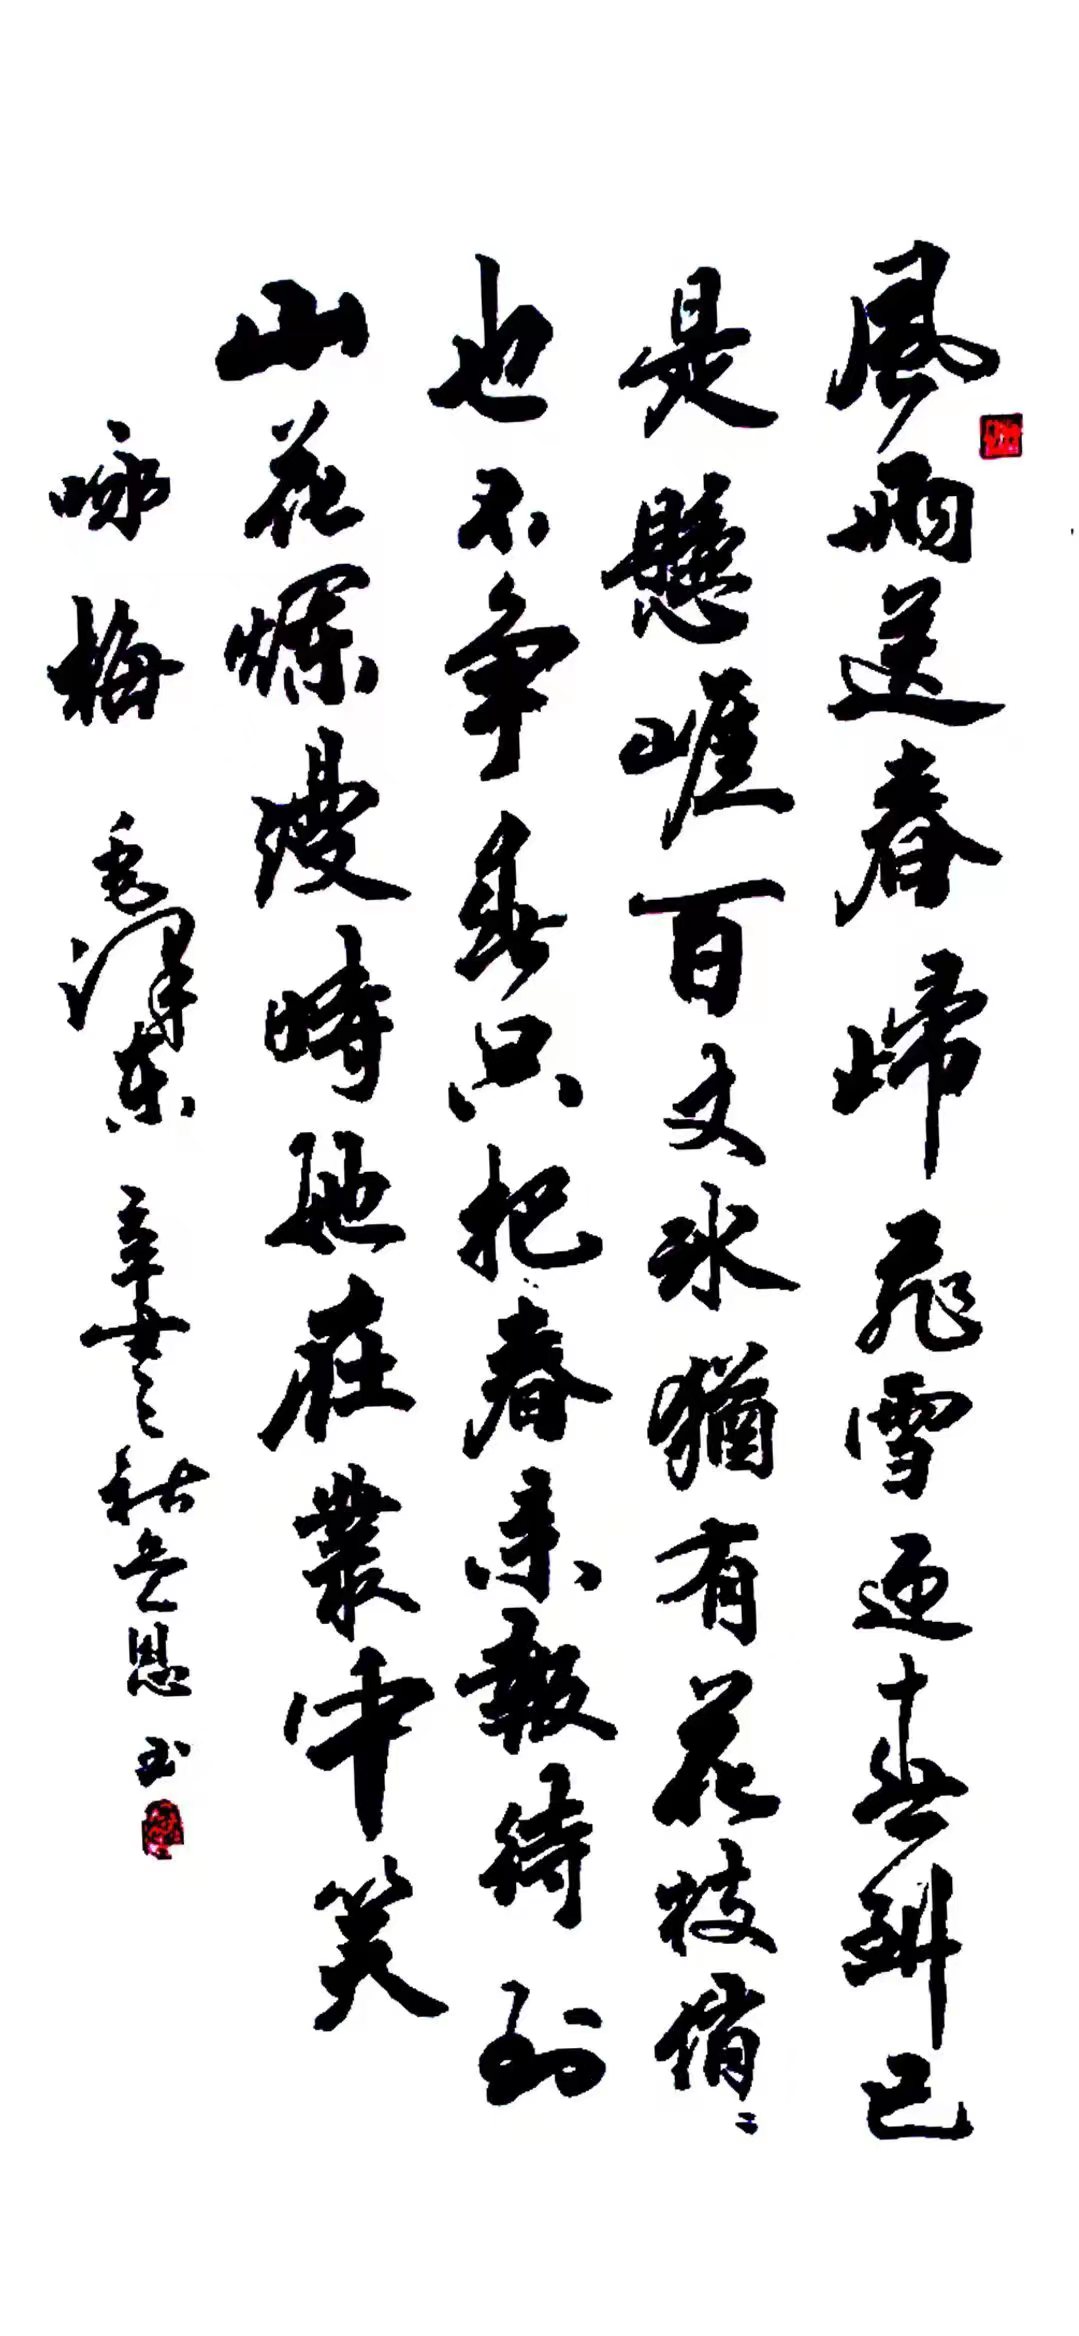 風雨送春歸飛雪迎春到已
是懸崖百丈冰猶有花枝俏〻
也不争春只把春来報待到
山花爛漫時她在叢中笑
咏梅 毛澤東 辛丑之秋 恩玉